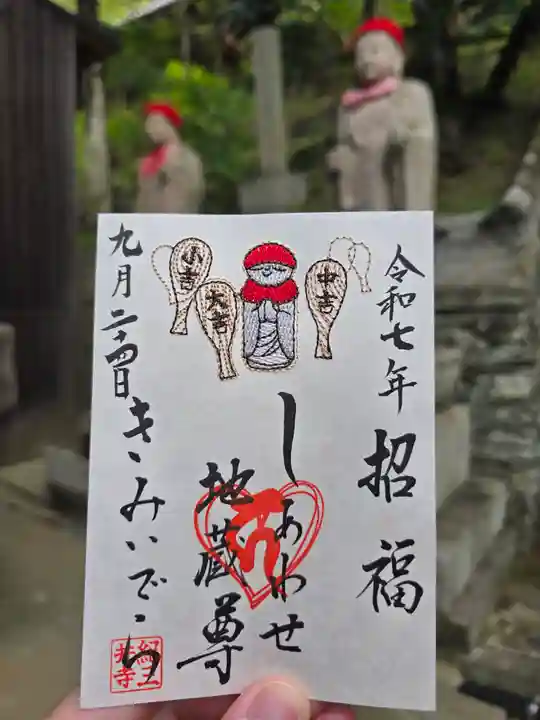 令和七年
招福
中吉
大吉
小吉
しあわせ
地蔵尊
九月二十四日
きみいでら
紀三井寺